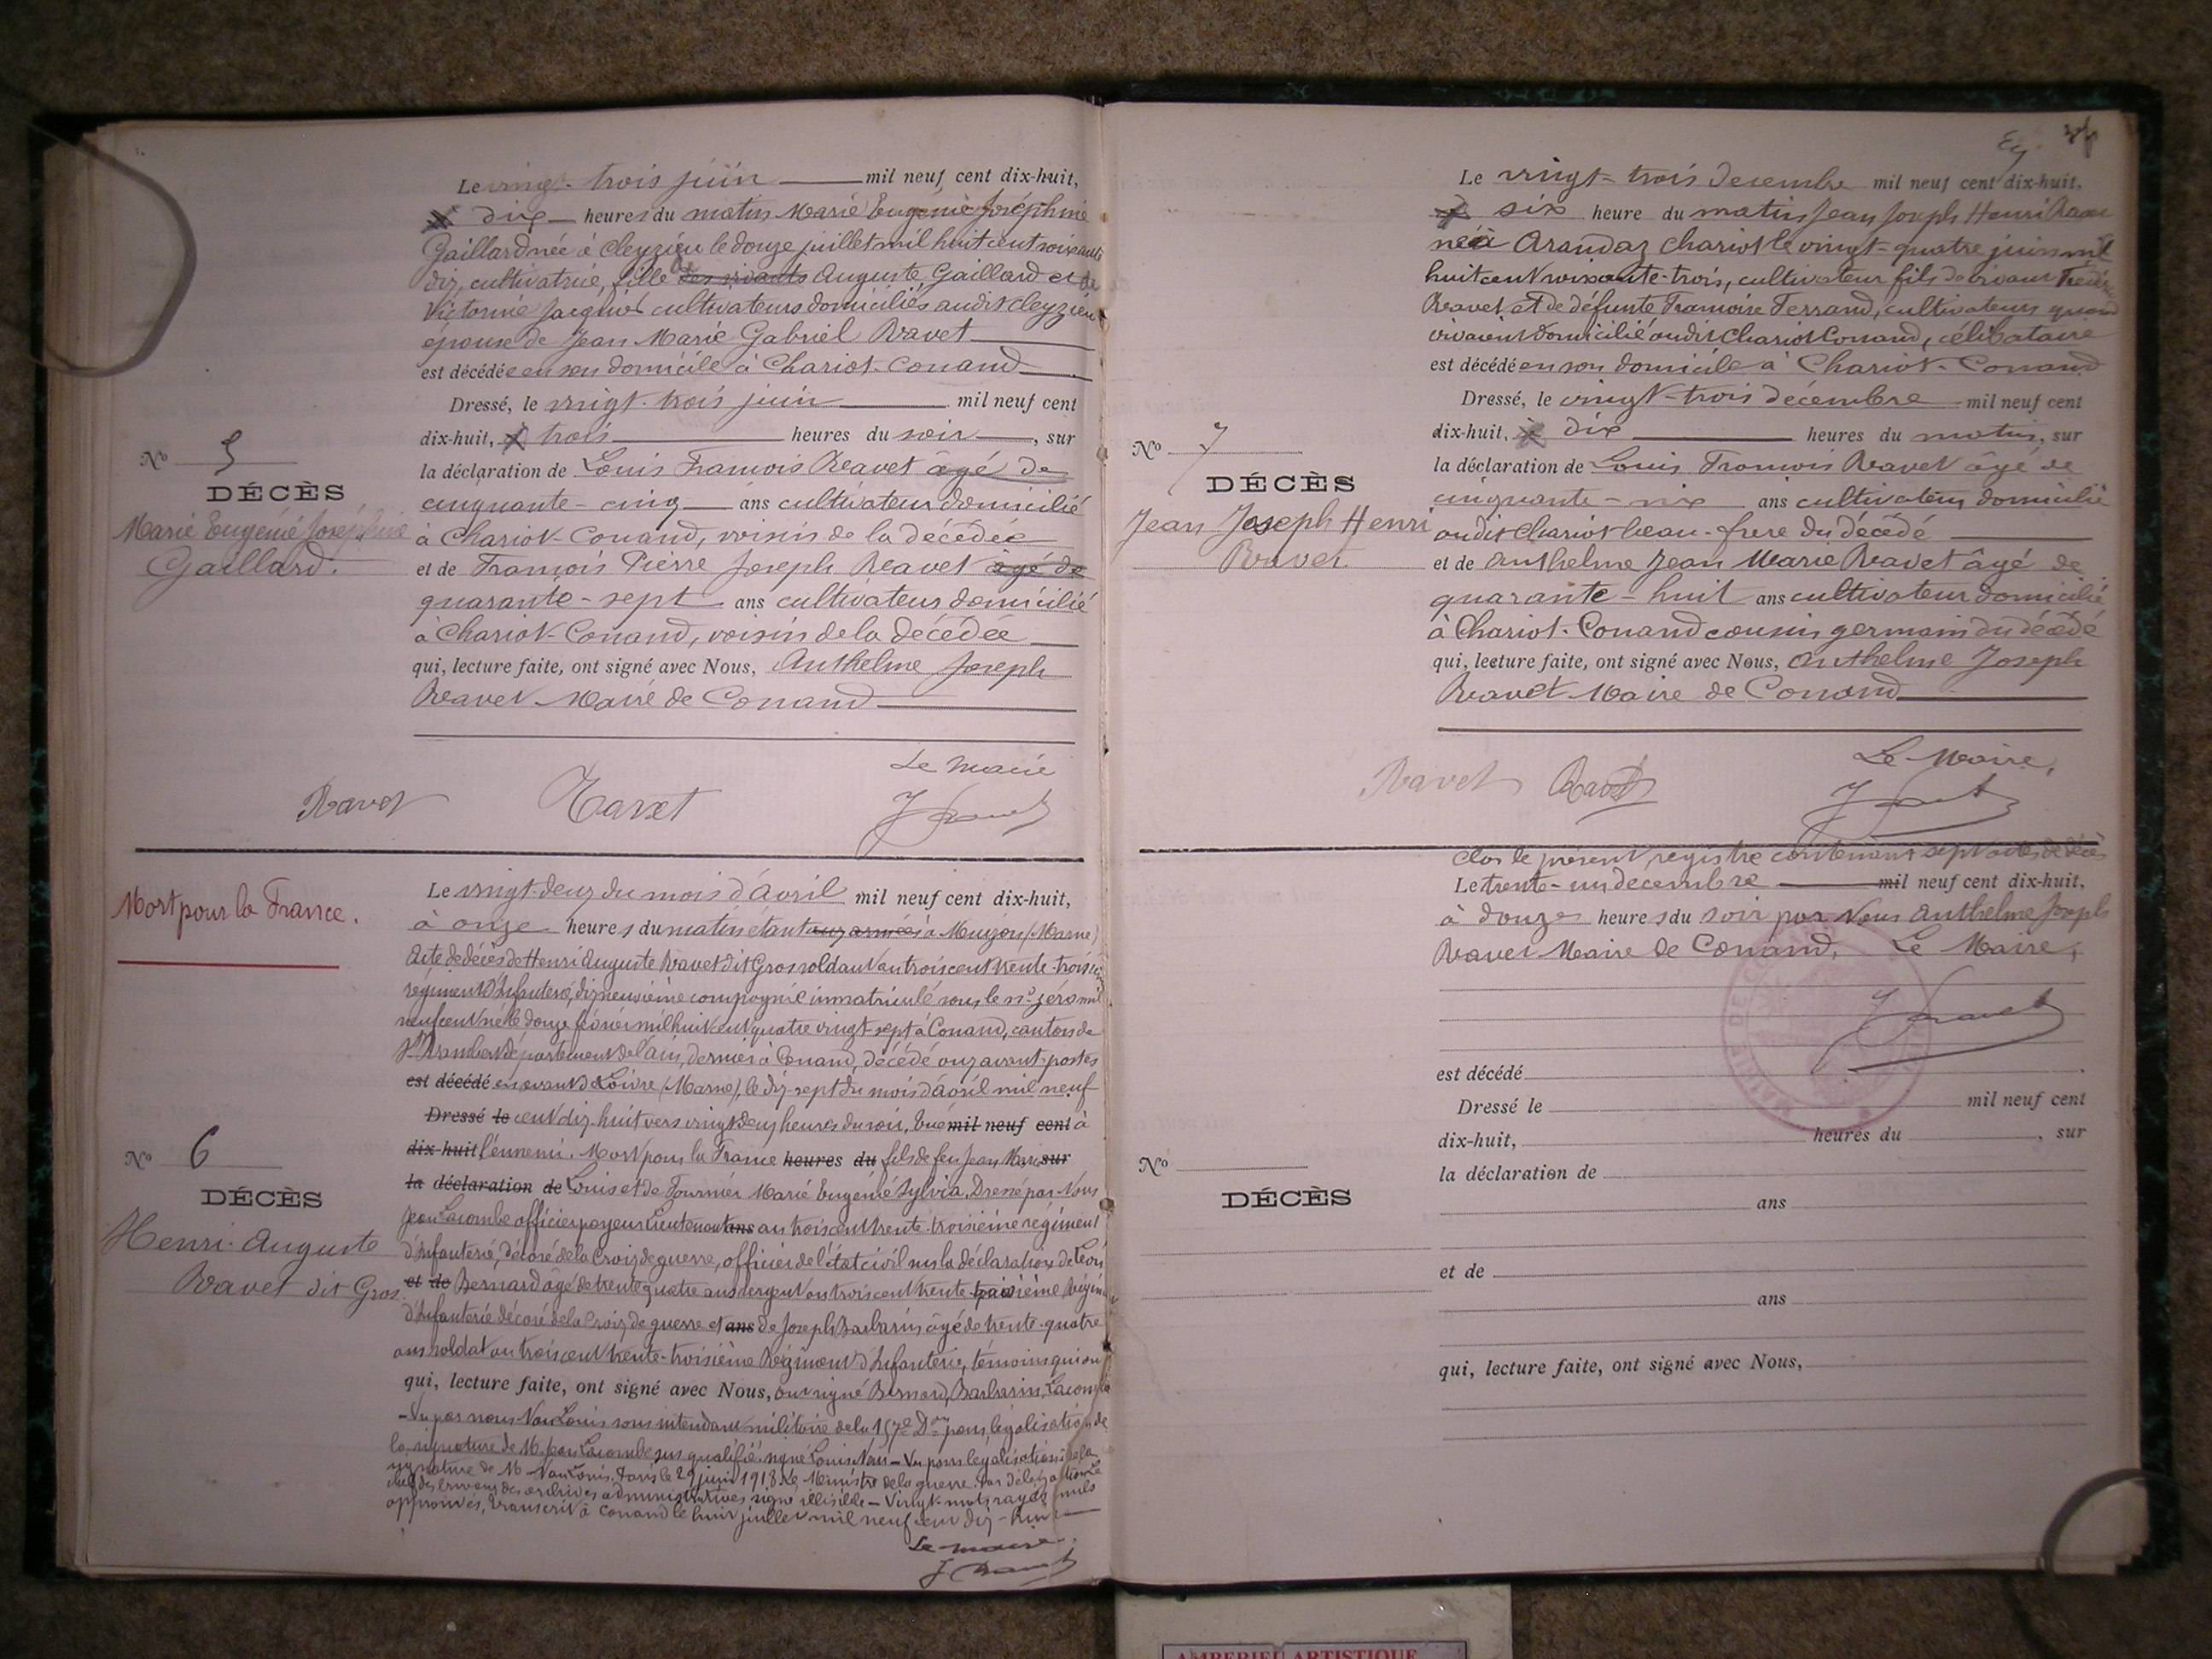 Le vingt-trois juin mil neuf cent dix-huit,
dix heures du matin Marie Eugénie Joséphine
Gaillard née à Cleyzieu le douze juillet mil huit cent soixante
dix, cultivatrice, fille des vivants Auguste Gaillard et de
Victorine Jacquier cultivateurs domiciliés audit Cleyzieu
épouse de Jean Marie Gabriel Ravet
est décédée en son domicile à Chariot-Conand
Dressé, le vingt-trois juin mil neuf cent
dix-huit, à trois heures du soir, sur
la déclaration de Louis François Ravet âgé de
cinquante-cinq ans cultivateur domicilié
à Chariot-Conand, voisin de la décédée
et de François Pierre Joseph Ravet âgé de
quarante-sept ans cultivateur domicilié
à Chariot-Conand, voisin de la décédée
qui, lecture faite, ont signé avec Nous, Anthelme Joseph
Ravet Maire de Conand
No 5
DÉCÈS
Marie Eugénie Joséphine
Gaillard.
Le Maire
Ravet Ravet J Ravet
Mort pour la France.
Le vingt-deux du mois d'avril mil neuf cent dix-huit,
à onze heures du matin étant aux armées à Muizon (Marne)
Acte de décès de Henri Auguste Ravet dit Gros soldat au trois cent trente-troisième
régiment d'Infanterie, dix neuvième compagnie immatriculé sous le no zéro mil
neuf cent né le douze février mil huit cent quatre vingt-sept à Conand, canton de
St Rambert département de l'Ain, dernier à Conand, décédé aux avant-postes
est décédé en avant de Loivre (Marne), le dix-sept du mois d'avril mil neuf
Dressé le cent dix-huit vers vingt deux heures du soir, tué mil neuf cent à
dix-huit l'ennemi. Mort pour la France heures du fils de feu Jean Marie sur
la déclaration de Louis et de Fournier Marie Eugénie Sylvia, Dressé par Nous
Jean Lacombe officier payeur Lieutenant ans au trois cent trente-troisième régiment
d'Infanterie, décoré de la Croix de guerre, officier de l'état civil sur la déclaration de Léon
et de Bernard âgé de trente quatre ans sergent au trois cent trente-troisième Régiment
d'Infanterie décoré de la Croix de guerre et ans de Joseph Barbarin âgé de trente-quatre
ans soldat au trois cent trente-troisième Régiment d'Infanterie, témoins qui ont
qui, lecture faite, ont signé avec Nous, ont signé Bernard, Barbarin, Lacombe
- Vu par nous Louis sous intendant militaire de la 157e Don pour légalisation de
la signature de M. Jean Lacombe sus qualifié signé Louis - Vu pour légalisation de la
signature de M Louis. Paris le 29 juin 1918 Le Ministre de la guerre. Par délégation Le
chef des bureaux des archives administratives signé illisible - Vingt mots rayés nuls
approuvés, transcrit à Conand le huit juillet mil neuf cent dix-huit
Le Maire
J Ravet
No 6
DÉCÈS
Henri-Auguste
Ravet dit Gros.
Le vingt-trois décembre mil neuf cent dix-huit,
à six heure du matin Jean Joseph Henri Ravet
né à Arandaz Chariot le vingt-quatre juin mil
huit cent soixante-trois, cultivateur fils de vivant
Ravet et de défunte Françoise Ferrand, cultivateurs quand
vivaient domicilié audit Chariot Conand, célibataire
est décédé en son domicile à Chariot-Conand
Dressé, le vingt-trois décembre mil neuf cent
dix-huit, à dix heures du matin, sur
la déclaration de Louis François Ravet âgé de
cinquante-six ans cultivateur domicilié
audit Chariot beau-frère du décédé
et de Anthelme Jean Marie Ravet âgé de
quarante-huit ans cultivateur domicilié
à Chariot-Conand cousin germain du décédé
qui, lecture faite, ont signé avec Nous, Anthelme Joseph
Ravet Maire de Conand
No 7
DÉCÈS
Jean Joseph Henri
Ravet
Le Maire,
Ravet Ravet J Ravet
Clos le présent registre contenant sept actes de décès
Le trente-un décembre mil neuf cent dix-huit,
à douze heures du soir par Nous Anthelme Joseph
Ravet Maire de Conand, Le Maire,
J Ravet
est décédé
Dressé le mil neuf cent
dix-huit, heures du , sur
la déclaration de
ans
et de
ans
qui, lecture faite, ont signé avec Nous,
No
DÉCÈS
AMBERIEU ARTISTIQUE